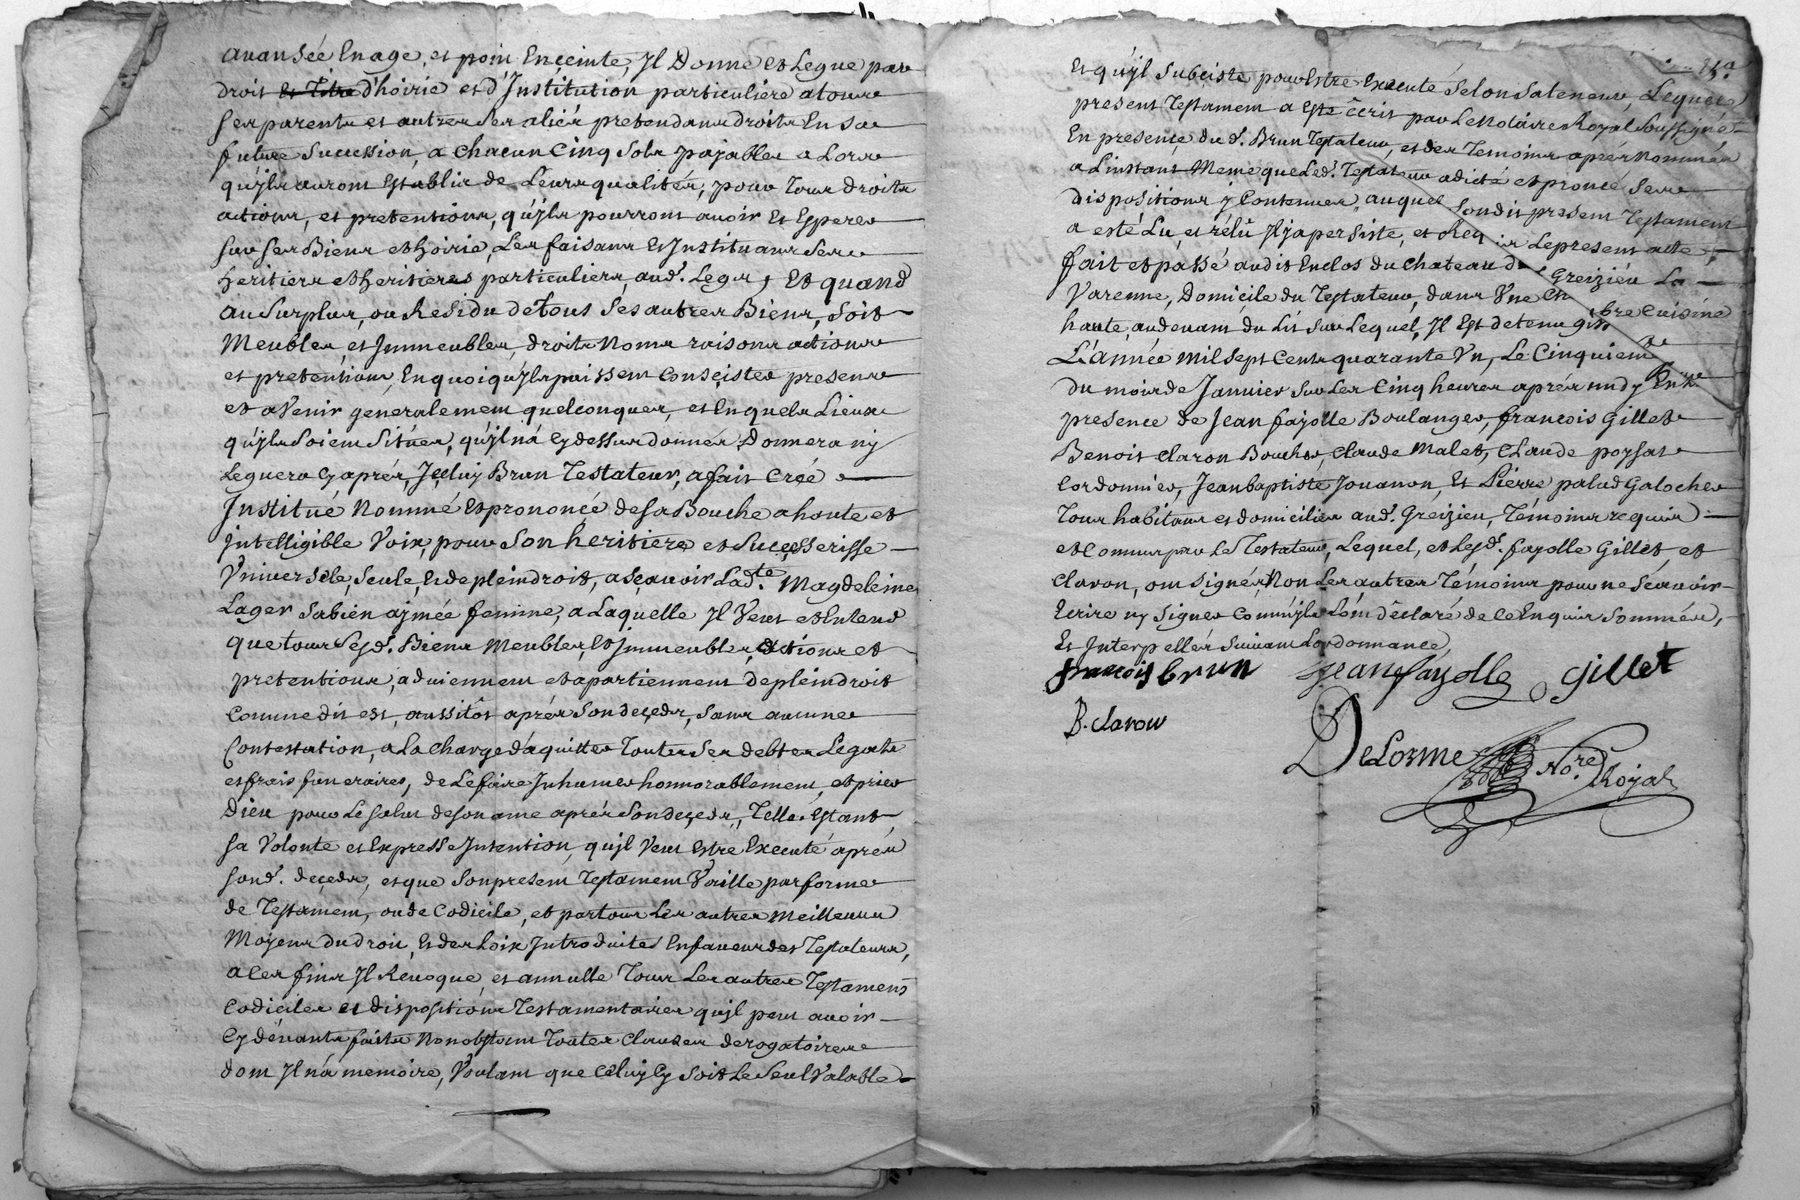 avansée En age, et poin Enceinte, Jl Donne et Legue par
droit et titre d'hoirie et d'Jnstitution particuliere a tous
ses parents et autres ses aliés pretendans droits En sa
future Succession, a Chacun Cinq Sols payables a Lors
qu'jls auront Establis de Leurs qualités, pour tous droits
actions, et pretentions, qu'jls pourront avoir Et Esperer
sur ses Biens et hoirie, Les faisant Et Jnstituant Ses
heritiers et heritieres particuliers, aud. Legs, Et quand
au Surplus, ou Residu de tous Ses autres Biens, Soit
Meubles, et Jmmeubles, droits Noms raisons actions
et pretentions, En quoi qu'jls puissent Conseister presens
et aVenir generalement quelconques, et En quels Lieux
qu'jls Soient Situés, qu'jl n'a Cy dessus donnés Donnera ny
Leguera Cy aprés, Jceluy Brun Testateur, a fait Créé
Jnstitué Nommé Et prononcé de sa Bouche a haute et
Jntelligible Voix, pour Son heritiere et Successerisse
Vniverselle, Seule, Et de plein droit, a sçavoir Lad.te Magdeleine
Lager Sa bien ajmée femme, a Laquelle Jl Veut Et Entend
que tous Sesd. Biens Meubles, Et Jmmeubles, actions et
pretentions, adviennent et apartiennent de plein droit
Comme dit est, aussitôt aprés Son deçeds, Sans aucune
Contestation, a La Charge d'aquitter Toutes Ses debtes Legats
et frais funeraires, de Le faire Jnhumer honnorablement, et prier
Dieu pour Le Salut de Son ame aprés Son deçeds, Telle Estant
sa Volonté et Expresse Jntention, qu'jl Veut Estre Executé aprés
sond. deçeds, et que Son present Testament Vaille par forme
de Testament, ou de Codicile, et par tous Les autres Meilleurs
Moyens du droit, Et des Loix Jntroduites En faveur des Testateurs,
a Ces fins Jl Revoque, et annulle Tous Les autres Testamens
Codiciles et dispositions Testamentaires qu'jl peut avoir
Cy devants faits Nonobstant Toutes Clauses derogatoires
dont Jl n'a memoire, Voulant que Celuy Cy Soit Le Seul Valable
Et qu'jl Subciste pour Estre Executé Selon Sa teneur, Lequel
present Testament a Esté Ecrit par Le Notaire Royal Soussigné
En presence du d. Brun Testateur, et des Temoins aprés Nommés
a L'instant Meme que Led. Testateur a dicté et proncé Ses
dispositions y Contenues, auquel Sondit present Testament
a esté Lu, et rélû Jl ja persiste, et Le present acte
fait et passé audit Enclos du Chateau de Greizieu La
Varenne, Domicile du Testateur, dans Vne bre Cuisine
haute, au devant du Lit Sur Lequel, Jl Est detenu
L'année Mil Sept Cents quarante Vn, Le Cinquieme
du mois de Janvier Sur Les Cinq heures aprés midy En
presence de Jean fayolle Boulanger, francois Gillet
Benoit Claron Boucher, Claude Malet, Claude poysat
Cordonnier, Jean baptiste Jouanon, Et Pierre palud Galocher
Tous habitans et domiciliés aud. Greizieu, Témoins requis
et Connus par Le Testateur, Lequel, et Lesd. fayolle Gillet, et
Claron, ont Signés, Non Les autres Témoins pour ne Sçavoir
Ecrire ny Signer Comm'jls L'ont déclaré de Ce Enquis Sommés,
Et Jnterpellés Suivant L'ordonnance,
francois brun Jean fayolle gillet
B. claron
DeLorme No.re Royal